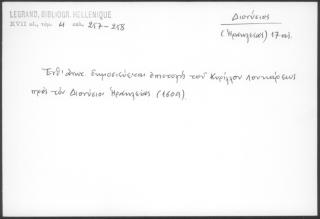 LEGRAND, BIBLIOGR. HELLENIQUE
XVII αἰ., τόμ. 4 σελ. 257-258
Διονύσιος
(Ἡρακλείας) 17 αἰ.
Ἐνθ' ἀνωτ. δημοσιεύεται ἐπιστολὴ τοῦ Κυρίλλου Λουκάρεως
πρὸς τὸν Διονύσιον Ἡρακλείας (1609).